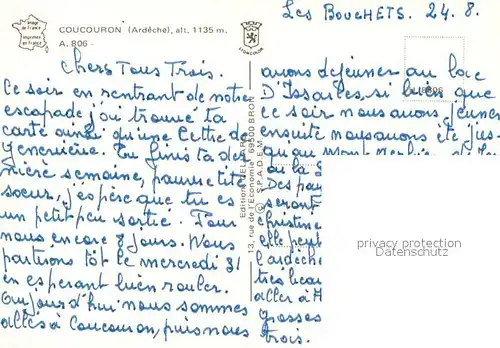 Les BoucHETS. 24.8.
Image de France
Imprimée en France
COUCOURON (Ardèche), alt. 1135 m.
A. 806 -
LYONCOLOR
Chers Tous Trois.
Ce soir en rentrant de notre
escapade, j'ai trouvé ta
carte ainsi qu'une lettre de
Geneviève. Tu finis ta der
nière semaine, pauvre tite
soeur, j'espère que tu es
un petit peu sortie. Pour
nous encore 8 jours. Nous
partirons tôt le mercredi 31
en espérant bien rouler.
Aujourd'hui nous sommes
allés à Coucouron, puis nous
Editions JEL
13, rue de l'Économie 69500 BRON
S.P.A.D.E.M.
avons déjeuner au lac
D'Issarlès, si bien que
ce soir nous avons
ensuite nous avons été jus
qu'au mont
ou la
Des pay
seront
christine
elle
l'ardèche
très beau
aller à
grosses
trois.
privacy protection
Datenschutz